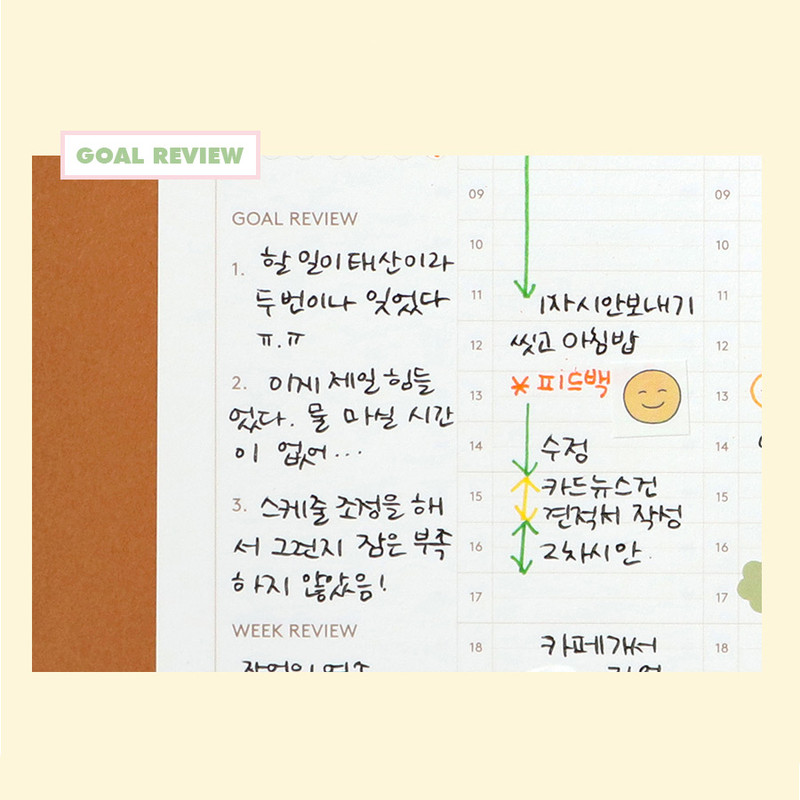 GOAL REVIEW
GOAL REVIEW
1. 할 일이 태산이라
두번이나 잊었다
ㅠ.ㅠ
2. 이게 제일 힘들
었다. 물 마실 시간
이 없어...
3. 스케줄 조정을 해
서 그런지 잠은 부족
하지 않았음!
WEEK REVIEW
09
10
11 1차시안보내기
12 씻고 아침밥
13 * 피드백
14 수정
15 카드뉴스건
견적서 작성
16 2차시안.
17
18 카페가서
09
10
11
12
13
14
15
16
17
18